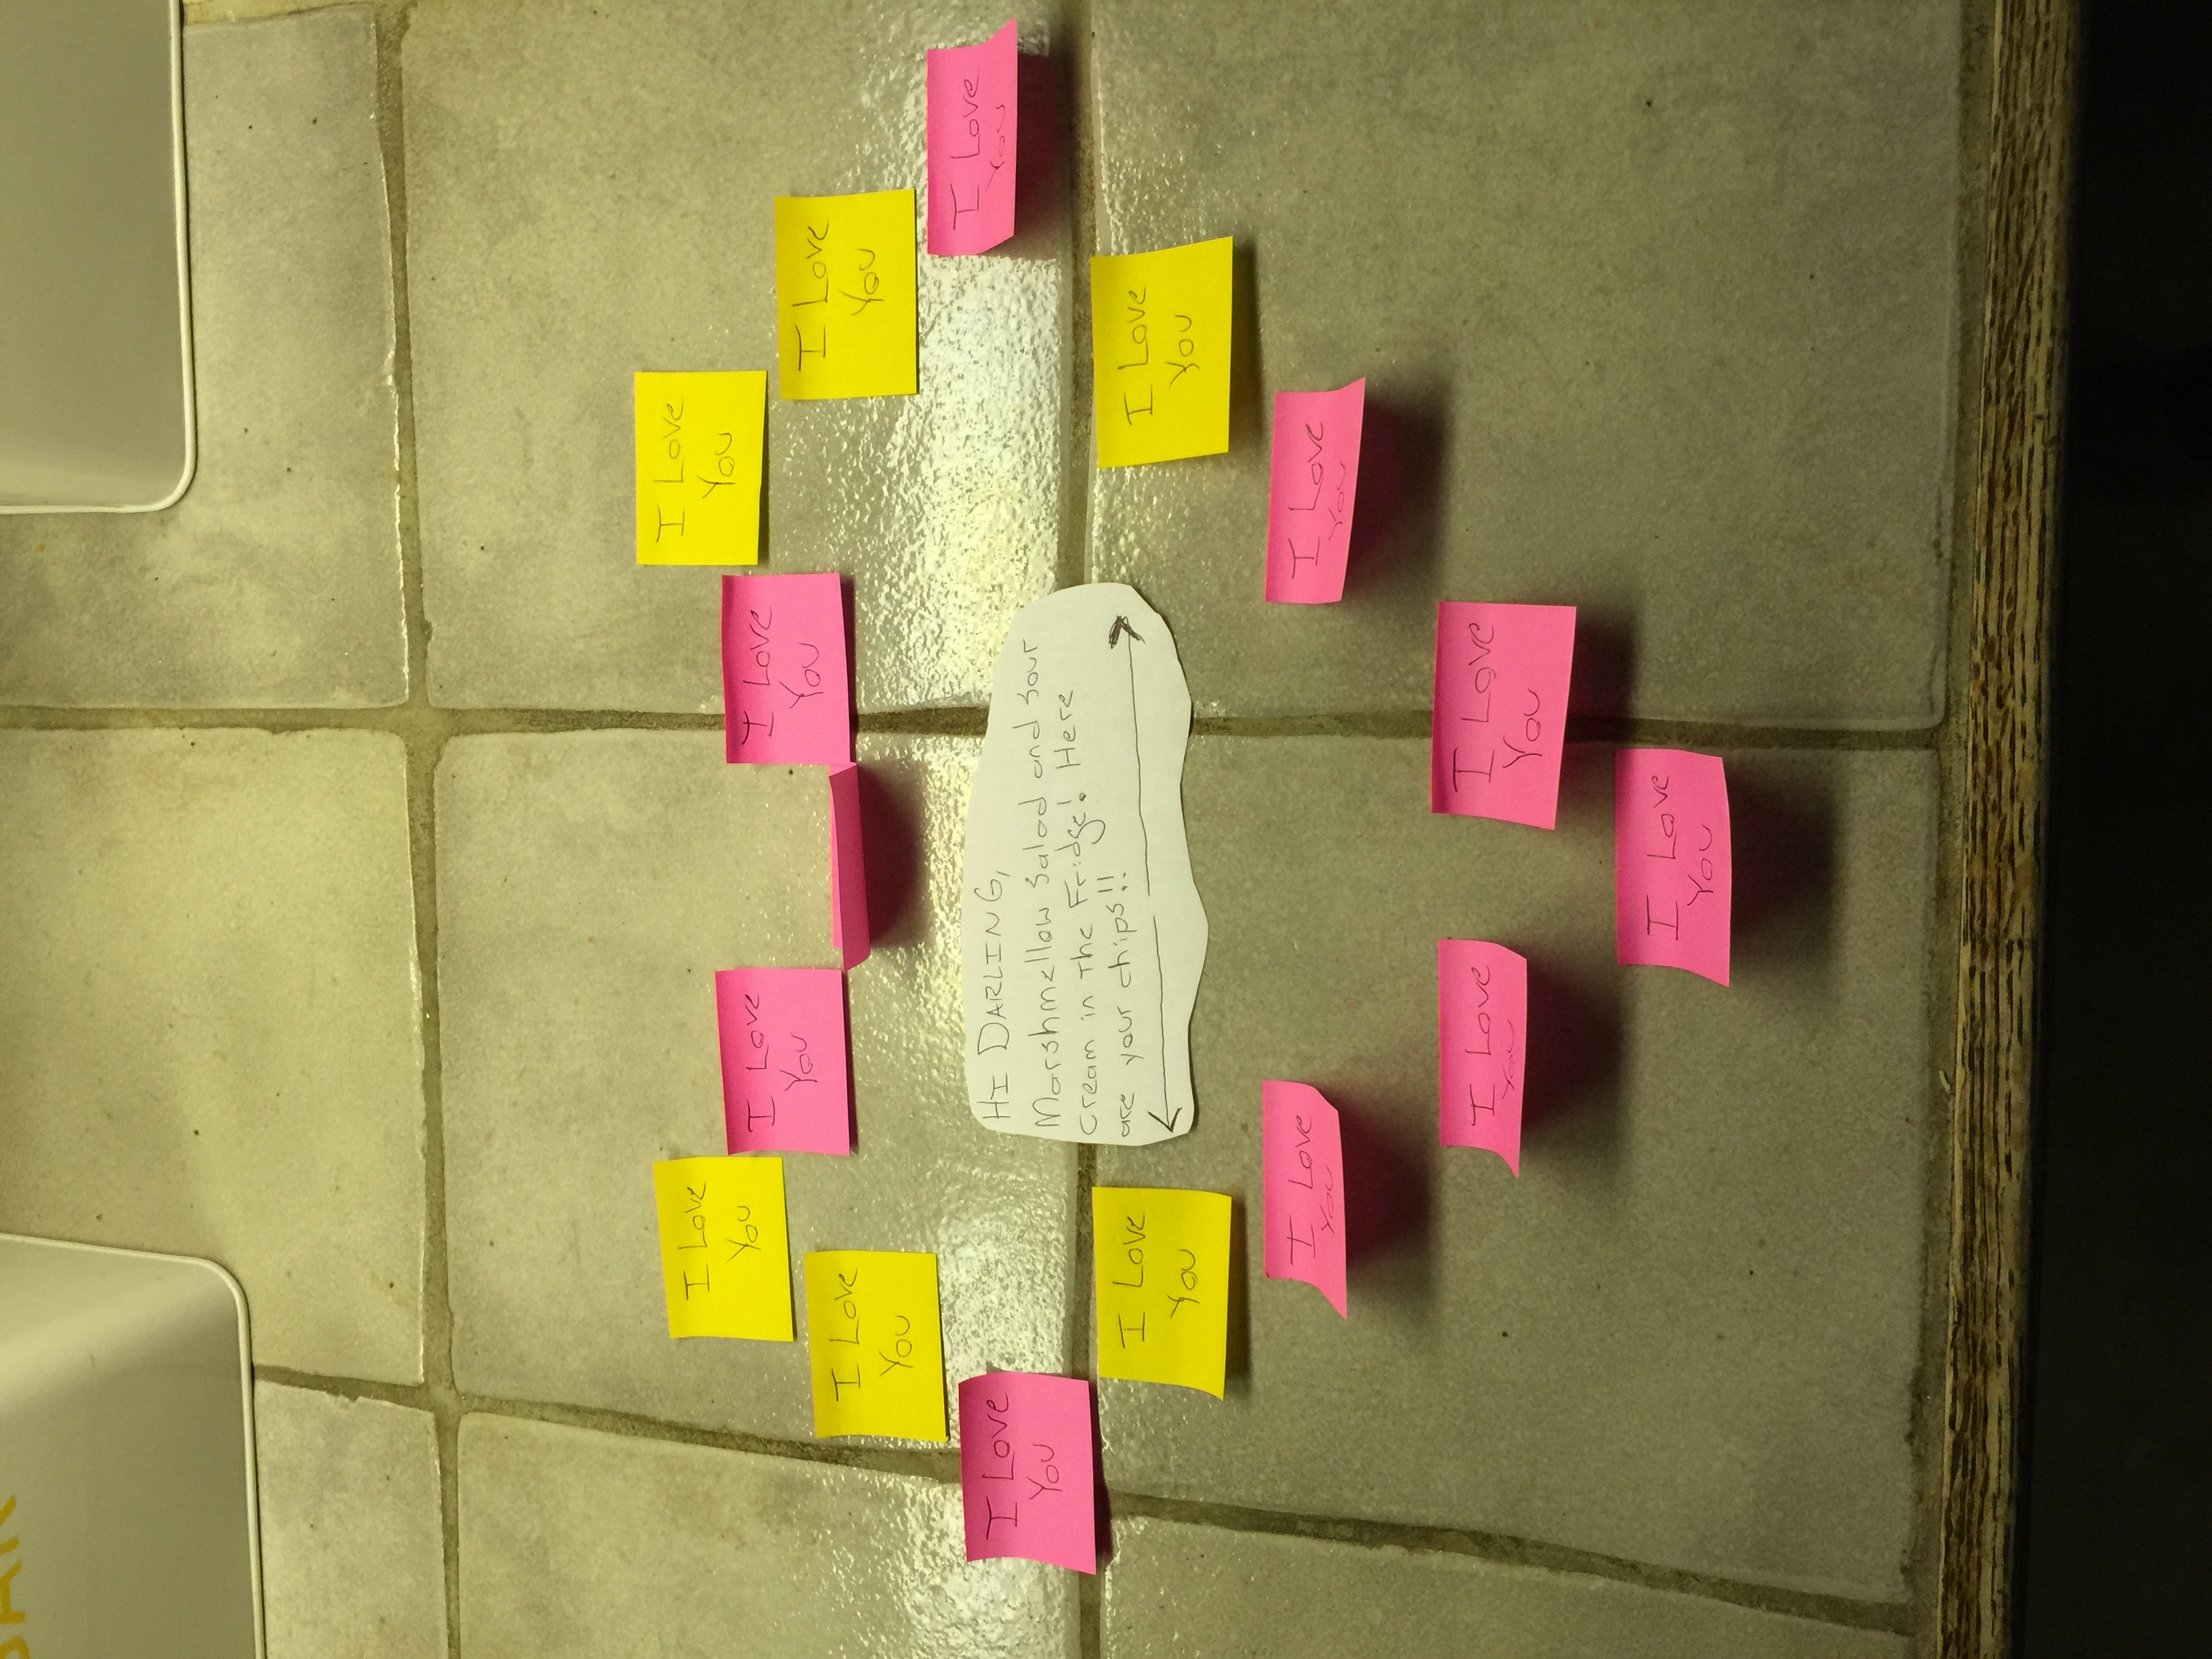 I Love
You
I Love
You
I Love
You
I Love
You
I Love
You
I Love
You
I Love
You
I Love
You
I Love
You
HI DARLING,
Marshmellow Salad and Sour
cream in the Fridge! Here
are your chips!!
I Love
You
I Love
You
I Love
You
I Love
You
I Love
You
I Love
You
I Love
You